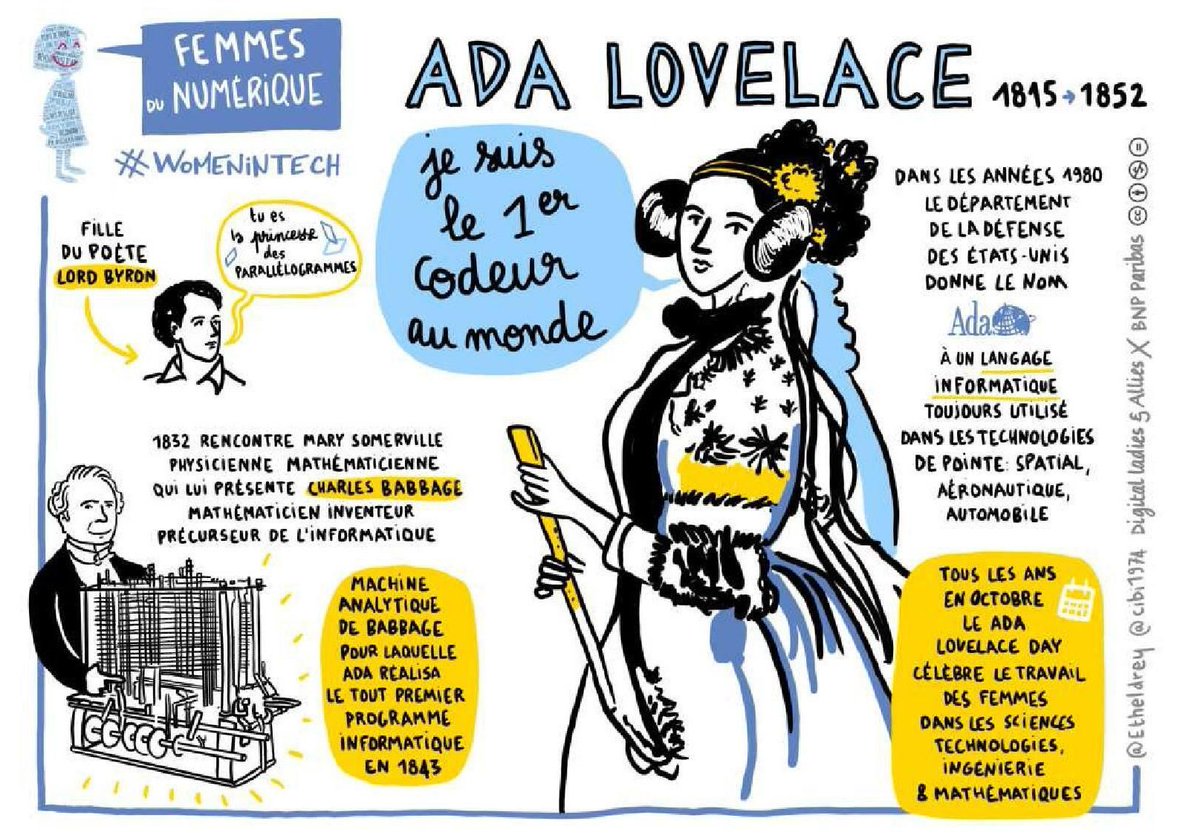 FEMMES
DU NUMÉRIQUE
#WOMENINTECH
ADA LOVELACE 1815→1852
FILLE
DU POÈTE
LORD BYRON
tu es
la princesse
des
PARALLÉLOGRAMMES
je suis
le 1er
codeur
au monde
DANS LES ANNÉES 1980
LE DÉPARTEMENT
DE LA DÉFENSE
DES ÉTATS-UNIS
DONNE LE NOM
Ada
À UN LANGAGE
INFORMATIQUE
TOUJOURS UTILISÉ
DANS LES TECHNOLOGIES
DE POINTE: SPATIAL,
AÉRONAUTIQUE,
AUTOMOBILE
1832 RENCONTRE MARY SOMERVILLE
PHYSICIENNE MATHÉMATICIENNE
QUI LUI PRÉSENTE CHARLES BABBAGE
MATHÉMATICIEN INVENTEUR
PRÉCURSEUR DE L'INFORMATIQUE
MACHINE
ANALYTIQUE
DE BABBAGE
POUR LAQUELLE
ADA RÉALISA
LE TOUT PREMIER
PROGRAMME
INFORMATIQUE
EN 1843
TOUS LES ANS
EN OCTOBRE
LE ADA
LOVELACE DAY
CÉLÈBRE LE TRAVAIL
DES FEMMES
DANS LES SCIENCES
TECHNOLOGIES,
INGÉNIERIE
& MATHÉMATIQUES
@Etheldrey @cibi1974 Digital ladies & Allies X BNP Paribas